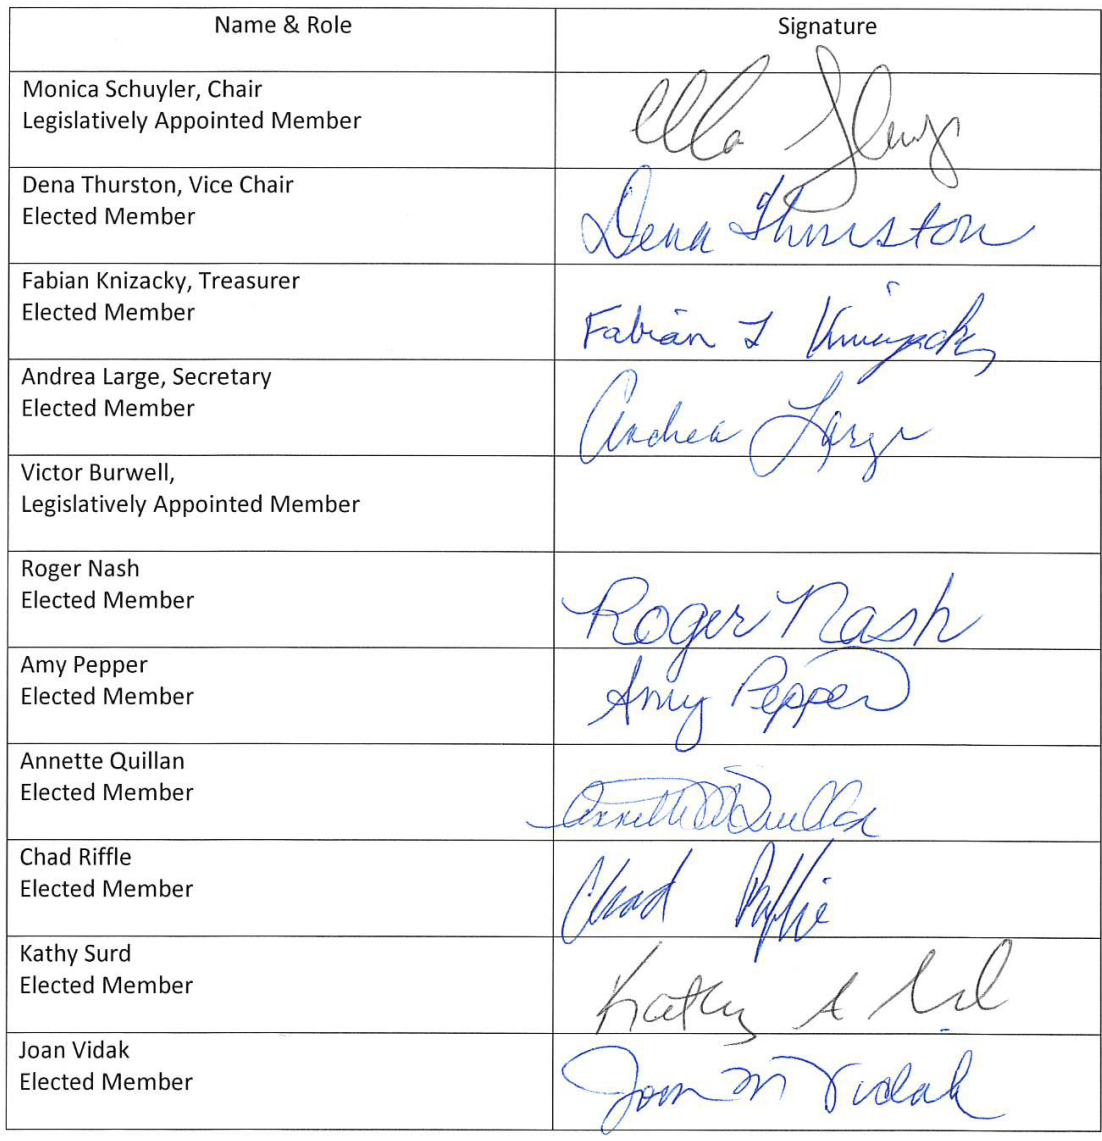 Name & Role
Signature
Monica Schuyler, Chair
Legislatively Appointed Member
Dena Thurston, Vice Chair
Elected Member
Dena Thurston
Fabian Knizacky, Treasurer
Elected Member
Fabian L Knizacky
Andrea Large, Secretary
Elected Member
Andrea Large
Victor Burwell,
Legislatively Appointed Member
Roger Nash
Elected Member
Roger Nash
Amy Pepper
Elected Member
Amy Pepper
Annette Quillan
Elected Member
Annette Quillan
Chad Riffle
Elected Member
Chad Riffle
Kathy Surd
Elected Member
Kathy A Surd
Joan Vidak
Elected Member
Joan M Vidak